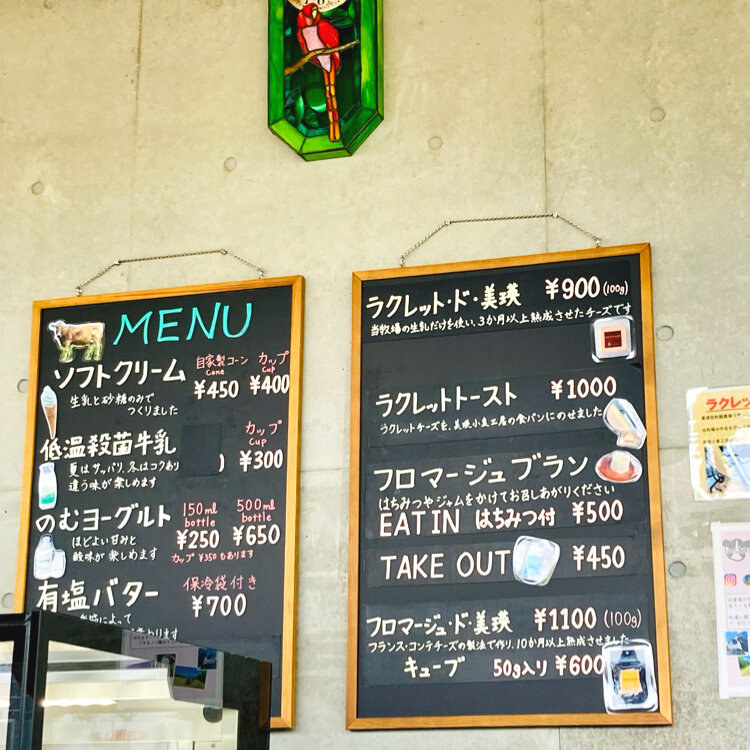 MENU
ソフトクリーム 自家製コーン Cone ¥450 カップ Cup ¥400
生乳と砂糖のみで
つくりました
低温殺菌牛乳 カップ Cup ¥300
夏はサッパリ、冬はコクあり
違う味が楽しめます
のむヨーグルト 150ml bottle ¥250 500ml bottle ¥650
ほどよい甘みと
酸味が楽しめます カップ¥350もあります
有塩バター 保冷袋付き
¥700
ラクレット・ド・美瑛 ¥900 (100g)
当牧場の生乳だけを使い、3か月以上熟成させたチーズです
ラクレットトースト ¥1000
ラクレットチーズを、美瑛小麦工房の食パンにのせました
フロマージュブラン
はちみつやジャムをかけてお召しあがりください
EAT IN はちみつ付 ¥500
TAKE OUT ¥450
フロマージュ・ド・美瑛 ¥1100 (100g)
フランス・コンテチーズの製法で作り、10か月以上熟成させました
キューブ 50g入り ¥600
ラクレッ